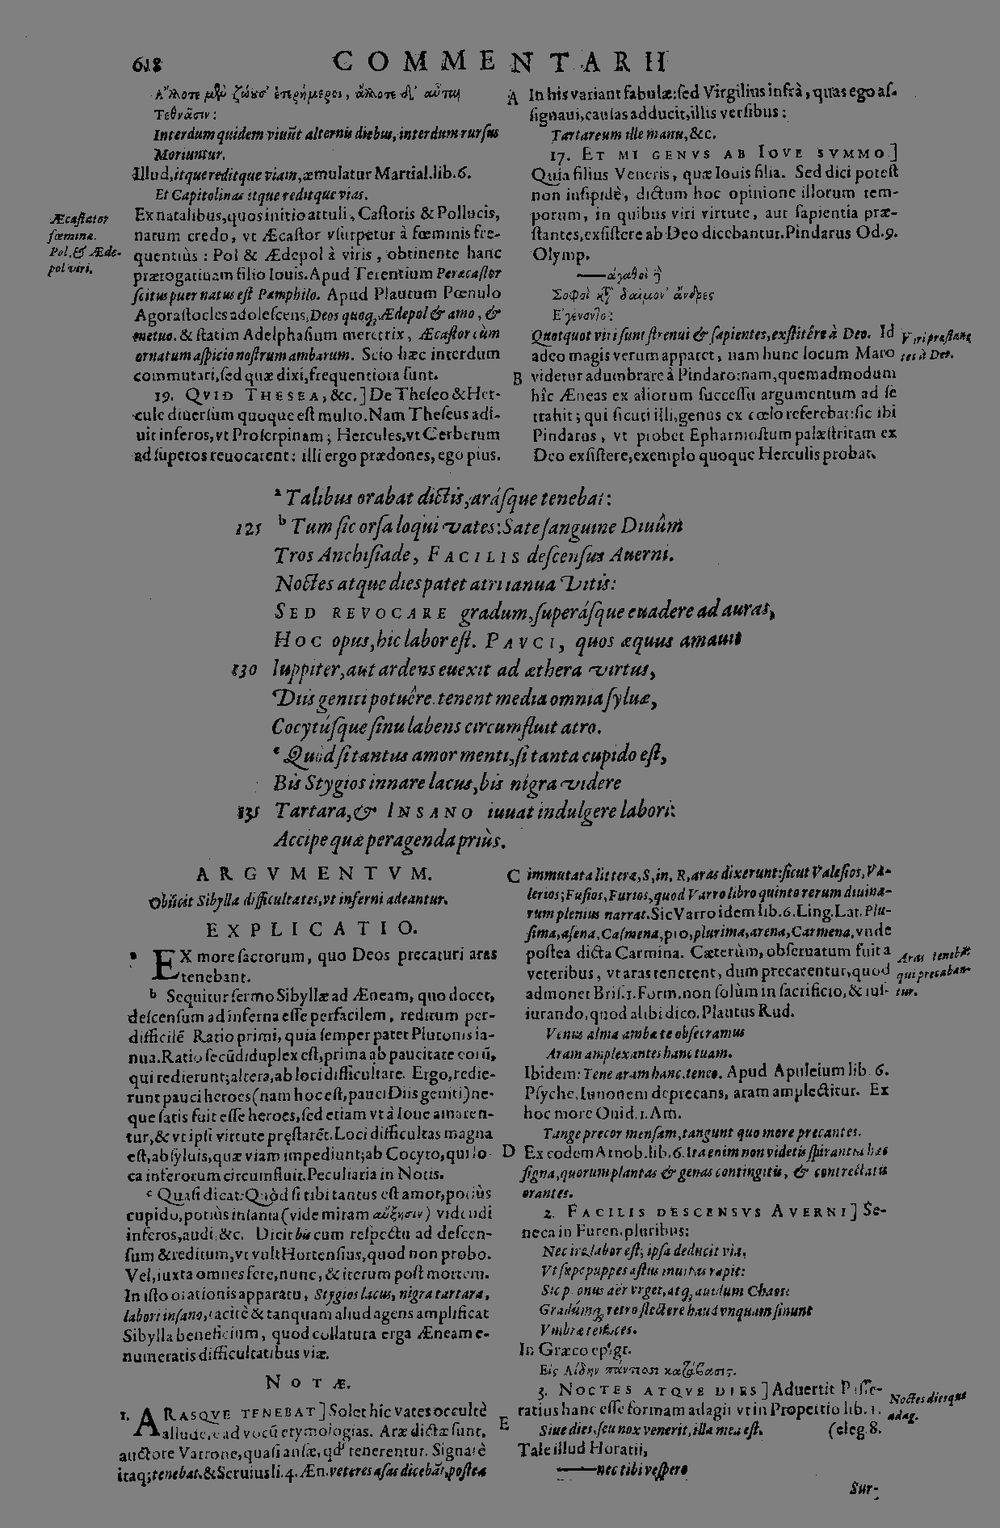 618
COMMENTARII
Ἄλλοτε μὲν ζώουσ' ἑτερήμεροι, ἄλλοτε δ' αὖτε
Τεθνᾶσιν:
Interdum quidem viuūt alternis diebus, interdum rursus
Moriuntur.
Illud, itque reditque viam, æmulatur Martial. lib. 6.
Et Capitolinas itque reditque vias.
Ex natalibus, quos initio attuli, Castoris & Pollucis,
natum credo, vt Æcastor vsurpetur à fœminis fre-
quentiùs: Pol & Ædepol à viris, obtinente hanc
prærogatiuam filio Iouis. Apud Terentium Perecastor
scitus puer natus est Pamphilo. Apud Plautum Pœnulo
Agorastocles adolescens, Deos quoq; Ædepol & amo, &
metuo. & statim Adelphasium meretrix, Æcastor cùm
ornatum aspicio nostrum ambarum. Scio hæc interdum
commutari, sed quæ dixi, frequentiora sunt.
19. QVID THESEA, &c.] De Theseo & Her-
cule diuersum quoque est multo. Nam Theseus adi-
uit inferos, vt Proserpinam; Hercules, vt Cerberum
ad superos reuocarent: illi ergo prædones, ego pius.
Æcastor
fœmina.
Pol. & Æde-
pol viri.
A In his variant fabulæ: sed Virgilius infrà, quas ego as-
signaui, causas adducit, illis versibus:
Tartareum ille manu, &c.
17. ET MI GENVS AB IOVE SVMMO]
Quia filius Veneris, quæ Iouis filia. Sed dici potest
non insipidè, dictum hoc opinione illorum tem-
porum, in quibus viri virtute, aut sapientia præ-
stantes, exsistere ab Deo dicebantur. Pindarus Od. 9.
Olymp.
—— ἀγαθοὶ ἢ
Σοφοὶ κτ̀ δαίμον' ἄνδρες
Ἐγένοντο:
Quotquot viri sunt strenui & sapientes, exstitêre à Deo. Id
adeo magis verum apparet, nam hunc locum Maro
B videtur adumbrare à Pindaro: nam, quemadmodum
hîc Æneas ex aliorum successu argumentum ad se
trahit; qui sicuti illi, genus ex cœlo referebat: sic ibi
Pindarus, vt probet Epharmostum palæstritam ex
Deo exsistere, exemplo quoque Herculis probat.
Viri præstan-
tes à Deo.
ᵃ Talibus orabat dictis, arásque tenebat:
125 ᵇ Tum sic orsa loqui vates: Sate sanguine Diuûm
Tros Anchisiade, FACILIS descensus Auerni.
Noctes atque dies patet atri ianua Ditis:
SED REVOCARE gradum, superásque euadere ad auras,
HOC opus, hic labor est. PAVCI, quos æquus amauit
130 Iuppiter, aut ardens euexit ad æthera virtus,
Diis geniti potuêre. tenent media omnia syluæ,
Cocytúsque sinu labens circumfluit atro.
ᶜ Quòd si tantus amor menti, si tanta cupido est,
Bis Stygios innare lacus, bis nigra videre
135 Tartara, & INSANO iuuat indulgere labori:
Accipe quæ peragenda priùs.
ARGVMENTVM.
Obiicit Sibylla difficultates, vt inferni adeantur.
EXPLICATIO.
ᵃ EX more sacrorum, quo Deos precaturi aras
tenebant.
ᵇ Sequitur sermo Sibyllæ ad Æneam, quo docet,
descensum ad inferna esse perfacilem, reditum per-
difficilē. Ratio primi, quia semper patet Plutonis ia-
nua. Ratio secūdi duplex est, prima ab paucitate eorū,
qui redierunt; altera, ab loci difficultate. Ergo, redie-
runt pauci heroes (nam hoc est, pauci Diis geniti) ne-
que satis fuit esse heroes, sed etiam vt à Ioue amaren-
tur, & vt ipsi virtute præstarēt. Loci difficultas magna
est, ab syluis, quæ viam impediunt; ab Cocyto, qui lo-
ca inferorum circumfluit. Peculiaria in Notis.
ᶜ Quasi dicat: Quòd si tibi tantus est amor, potiùs
cupido, potiùs insania (vide miram αὔξησιν) videndi
inferos, audi, &c. Dicit bis cum respectu ad descen-
sum & reditum, vt vult Hortensius, quod non probo.
Vel, iuxta omnes fere, nunc, & iterum post mortem.
In isto orationis apparatu, Stygios lacus, nigra tartara,
labori insano, tacitè & tanquam aliud agens amplificat
Sibylla beneficium, quod collatura erga Æneam e-
numeratis difficultatibus viæ.
NOTÆ.
1. ARASQVE TENEBAT] Solet hîc vates occultè
alludere ad vocū etymologias. Aræ dictæ sunt,
auctore Varrone, quasi ansæ, qd' tenerentur. Signatè
itaq; tenebat. & Seruius li. 4. Æn. veteres asas dicebāt, postea
C immutata littera, S, in, R, aras dixerunt: sicut Valesios, Va-
lerios; Fusios, Furios, quod Varro libro quinto rerum diuina-
rum plenius narrat. Sic Varro idem lib. 6. Ling. Lat. Plu-
sima, asena, Casmena, pro, plurima, arena, Carmena, vnde
postea dicta Carmina. Cæterùm, obseruatum fuit a
veteribus, vt aras tenerent, dum precarentur, quod
admonet Bris. 1. Form. non solùm in sacrificio, & iu-
iurando, quod alibi dico. Plautus Rud.
Venus alma ambæ te obsecramus
Aram amplexantes hanc tuam.
Ibidem: Tene aram hanc. teneo. Apud Apuleium lib. 6.
Psyche Iunonem deprecans, aram amplectitur. Ex
hoc more Ouid. 1. Am.
Tange precor mensam, tangunt quo more precantes.
D Ex codem Arnob. lib. 6. Ita enim non videtis spirantia hæc
signa, quorum plantas & genas contingitis, & contrectatis
orantes.
2. FACILIS DESCENSVS AVERNI] Se-
neca in Furen. pluribus:
Nec ire labor est; ipsa deducit via.
Vt sæpe puppes æstus inuitas rapit:
Sic pronus aër vrget, atq; auidum Chaos:
Gradúmq; retro flectere haud vnquam sinunt
Vmbræ tenaces.
In Græco epigr.
Εἰς Ἀίδην πάντοσι κατάβασις.
3. NOCTES ATQVE DIES] Aduertit Passe-
ratius hanc esse formam adagii vt in Propertio lib. 1.
E Siue dies, seu nox venerit, illa mea est. (eleg. 8.
Tale illud Horatii,
—— nec tibi vespero
Aras tenebāt
qui precaban-
tur.
Noctes diesque
adag.
Sur-